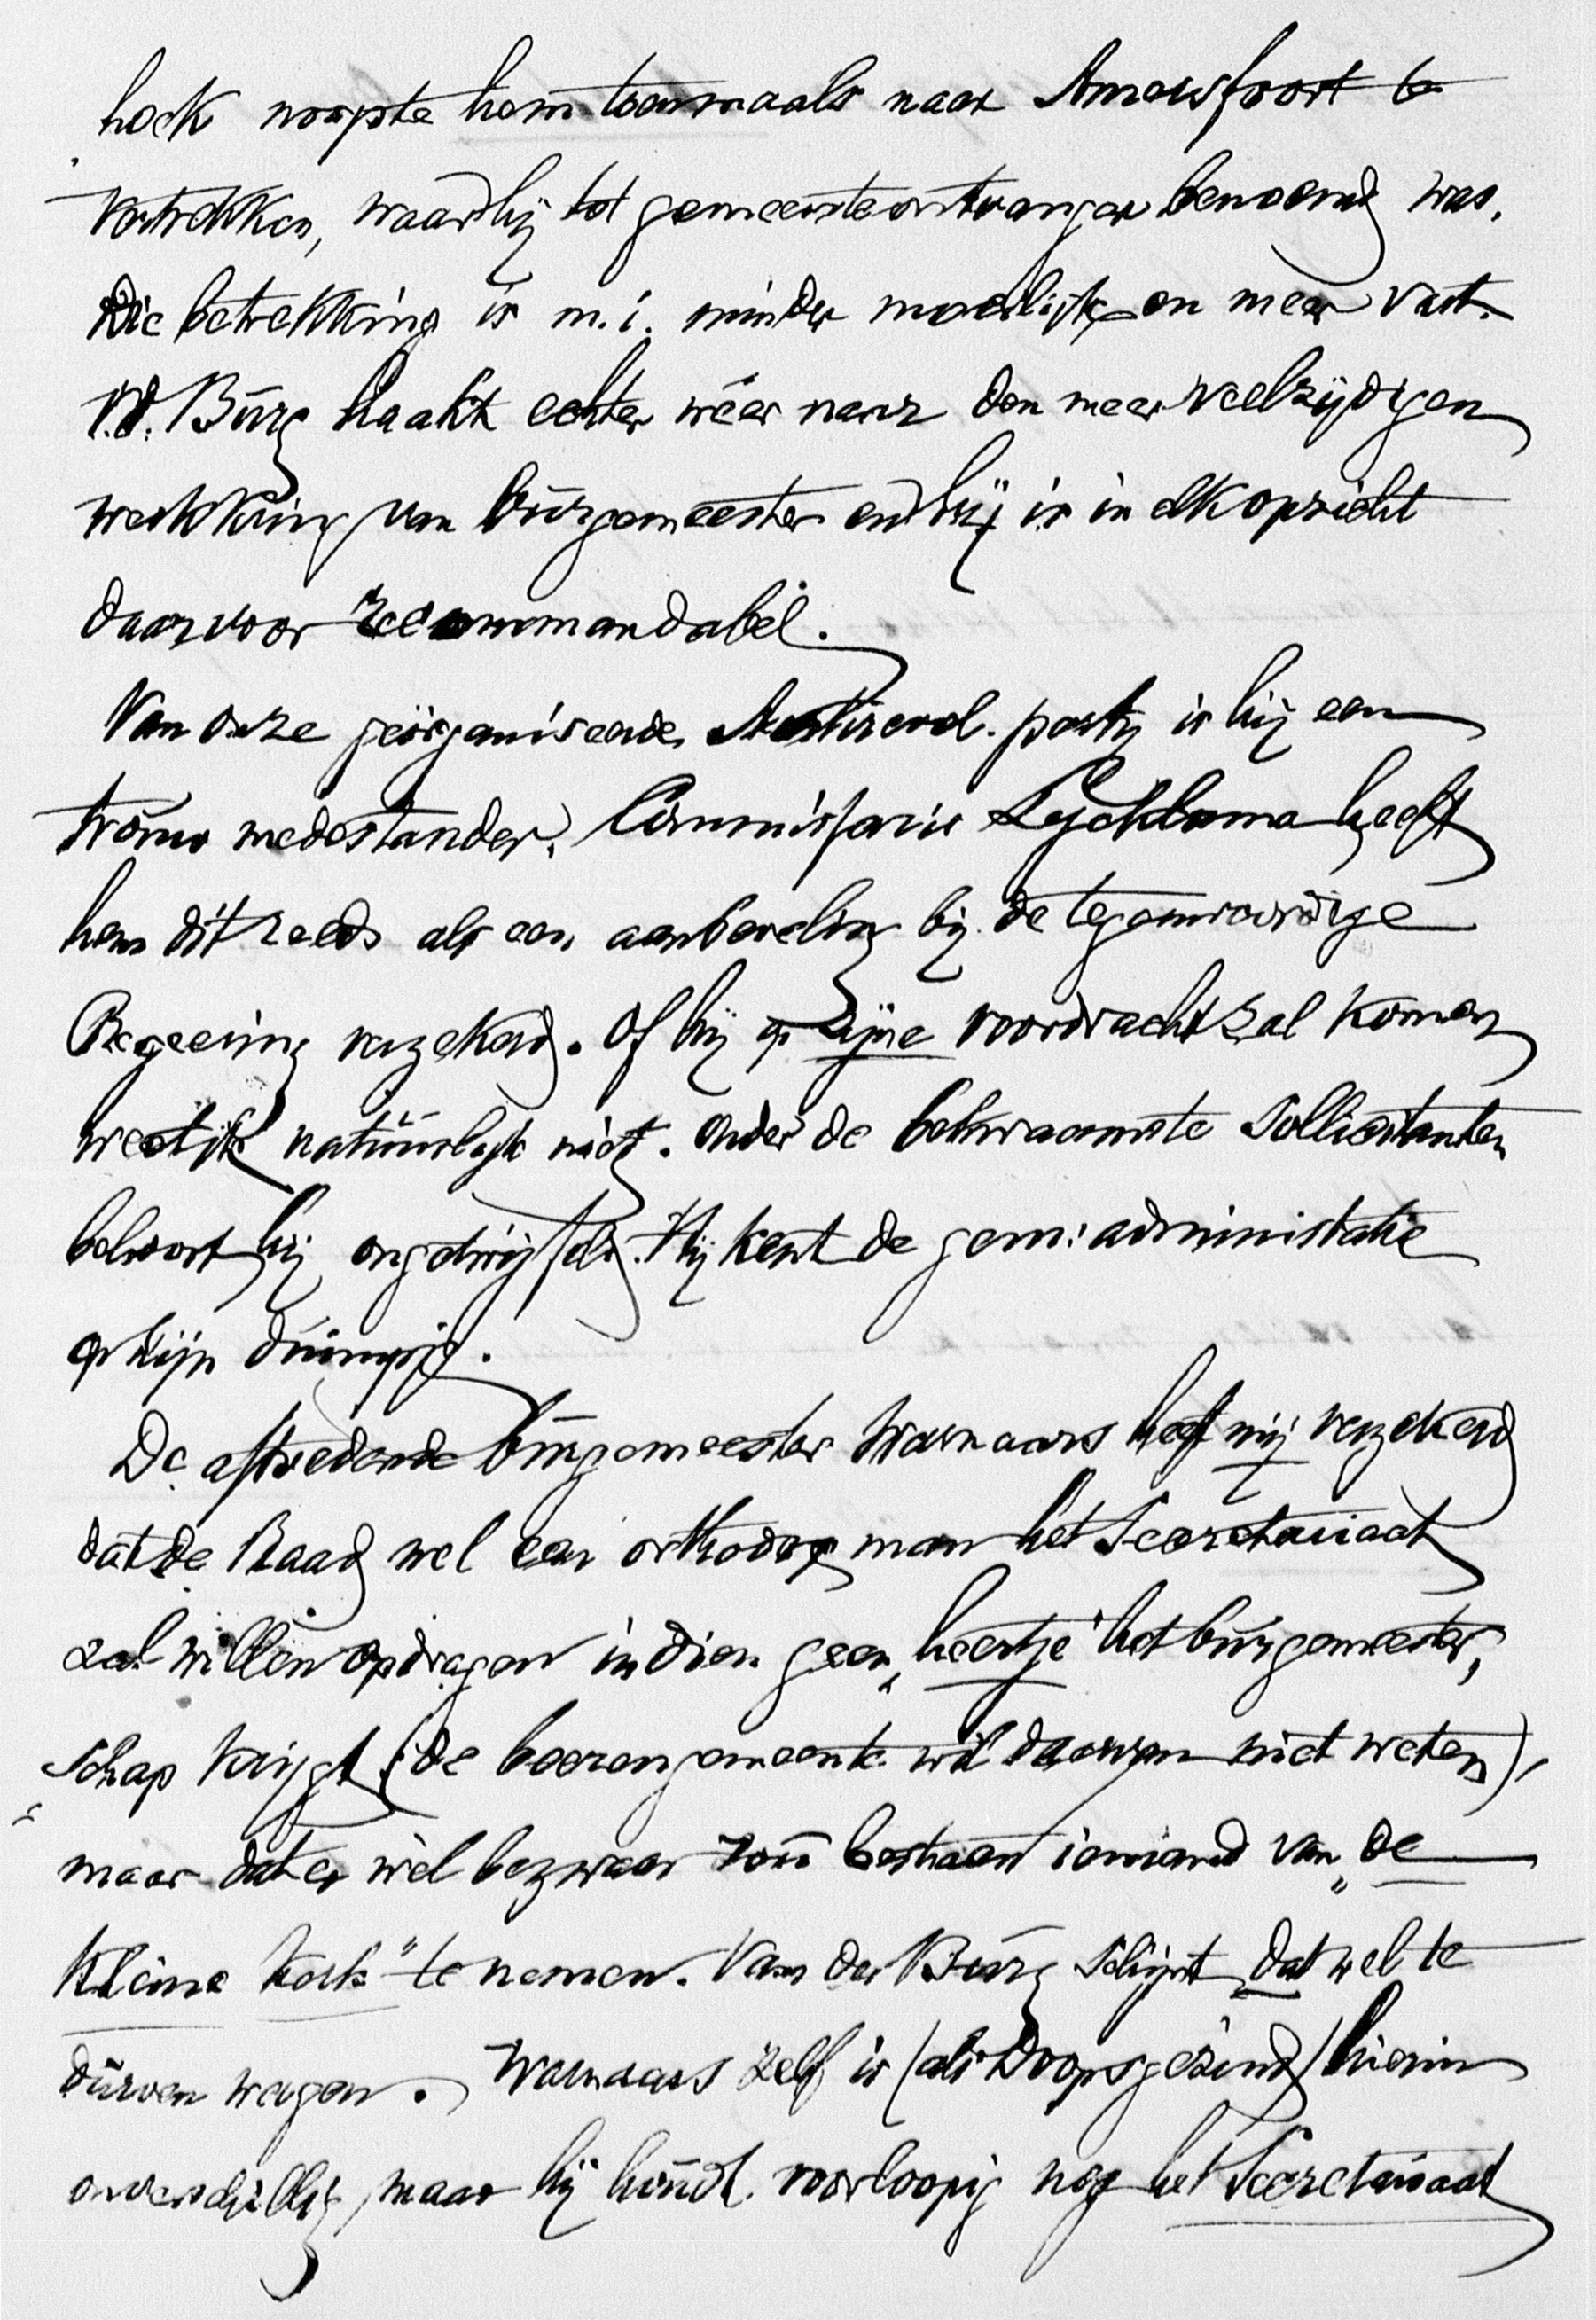 hoek noopte hem toenmaals naar Amersfoort te
vertrekken, waar hij tot gemeenteontvanger benoemd was.
Die betrekking is m.i. minder moeilijk en meer vast.
v.d. Burg haakt echter wéer naar den meer veelzijdigen
werkkring van burgemeester en hij is in elk opzicht
daarvoor recommandabel.
Van onze geörganiseerde Antirevol. partij is hij een
trouw medestander. Commissaris Lycklama heeft
hem dit reeds als een aanbeveling bij de tegenwoordige
Regeering verzekerd. Of hij op zijne voordracht zal komen
weet ik natuurlijk niet. Onder de bekwaamste sollicitanten
behoort hij ongetwijfeld. Hij kent de gem: administratie
op zijn duimpje.
De aftredende burgemeester Warnaars heeft mij verzekerd
dat de Raad wel een orthodox man het Secretariaat
zal willen opdragen indien geen „heertje" het burgemeester„
schap krijgt (de boerengemeente wil daarvan niet weten),
maar dat er wèl bezwaar zou bestaan iemand van „de
kleine kerk" te nemen. Van der Burg schijnt dat wel te
durven wagen. Warnaars zelf is (als Doopsgezind) hierin
onverschillig, maar hij houdt voorloopig nog het Secretariaat